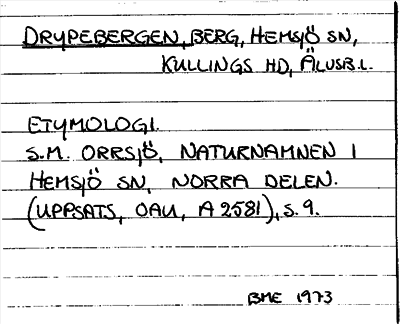 DRYPEBERGEN, BERG, HEMSJÖ SN,
KULLINGS HD, ÄLVSB.L.
ETYMOLOGI.
S.M. ORRSJÖ, NATURNAMNEN I
HEMSJÖ SN, NORRA DELEN.
(UPPSATS, OAU, A 2581), S. 9.
BME 1973